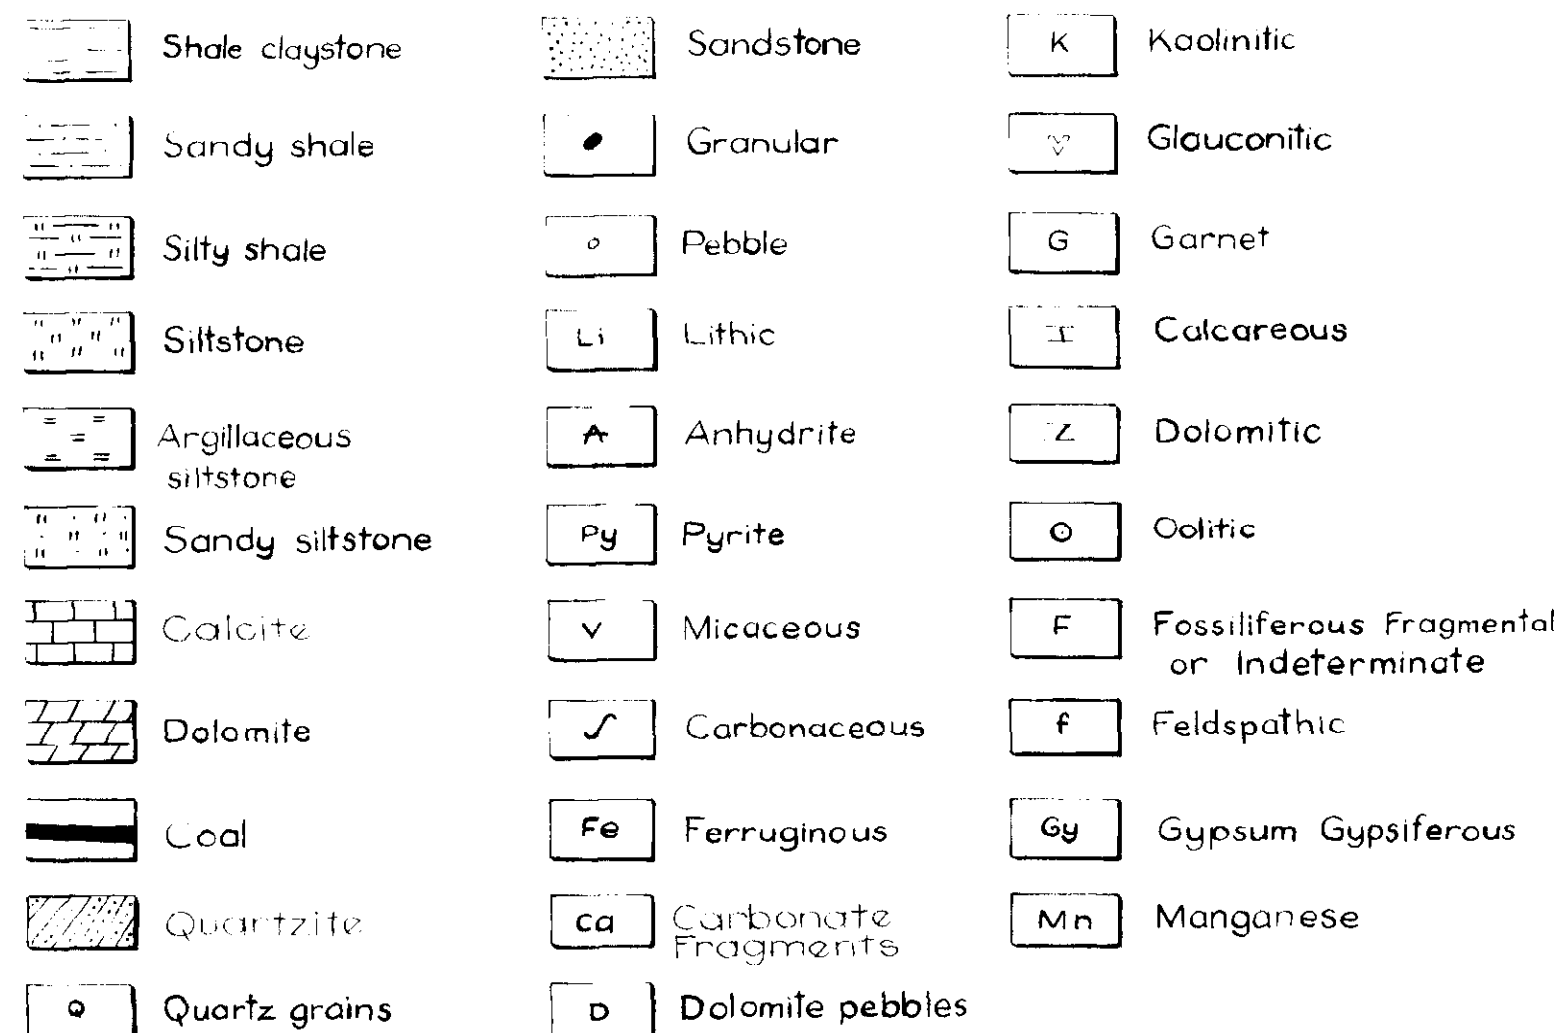 Shale claystone
Sandy shale
Silty shale
Siltstone
Argillaceous
siltstone
Sandy siltstone
Calcite
Dolomite
Coal
Quartzite
Q Quartz grains
Sandstone
Granular
Pebble
Li Lithic
A Anhydrite
Py Pyrite
V Micaceous
Carbonaceous
Fe Ferruginous
Ca Carbonate
Fragments
D Dolomite pebbles
K Kaolinitic
Glauconitic
G Garnet
Calcareous
Dolomitic
Oolitic
F Fossiliferous Fragmental
or Indeterminate
f Feldspathic
Gy Gypsum Gypsiferous
Mn Manganese